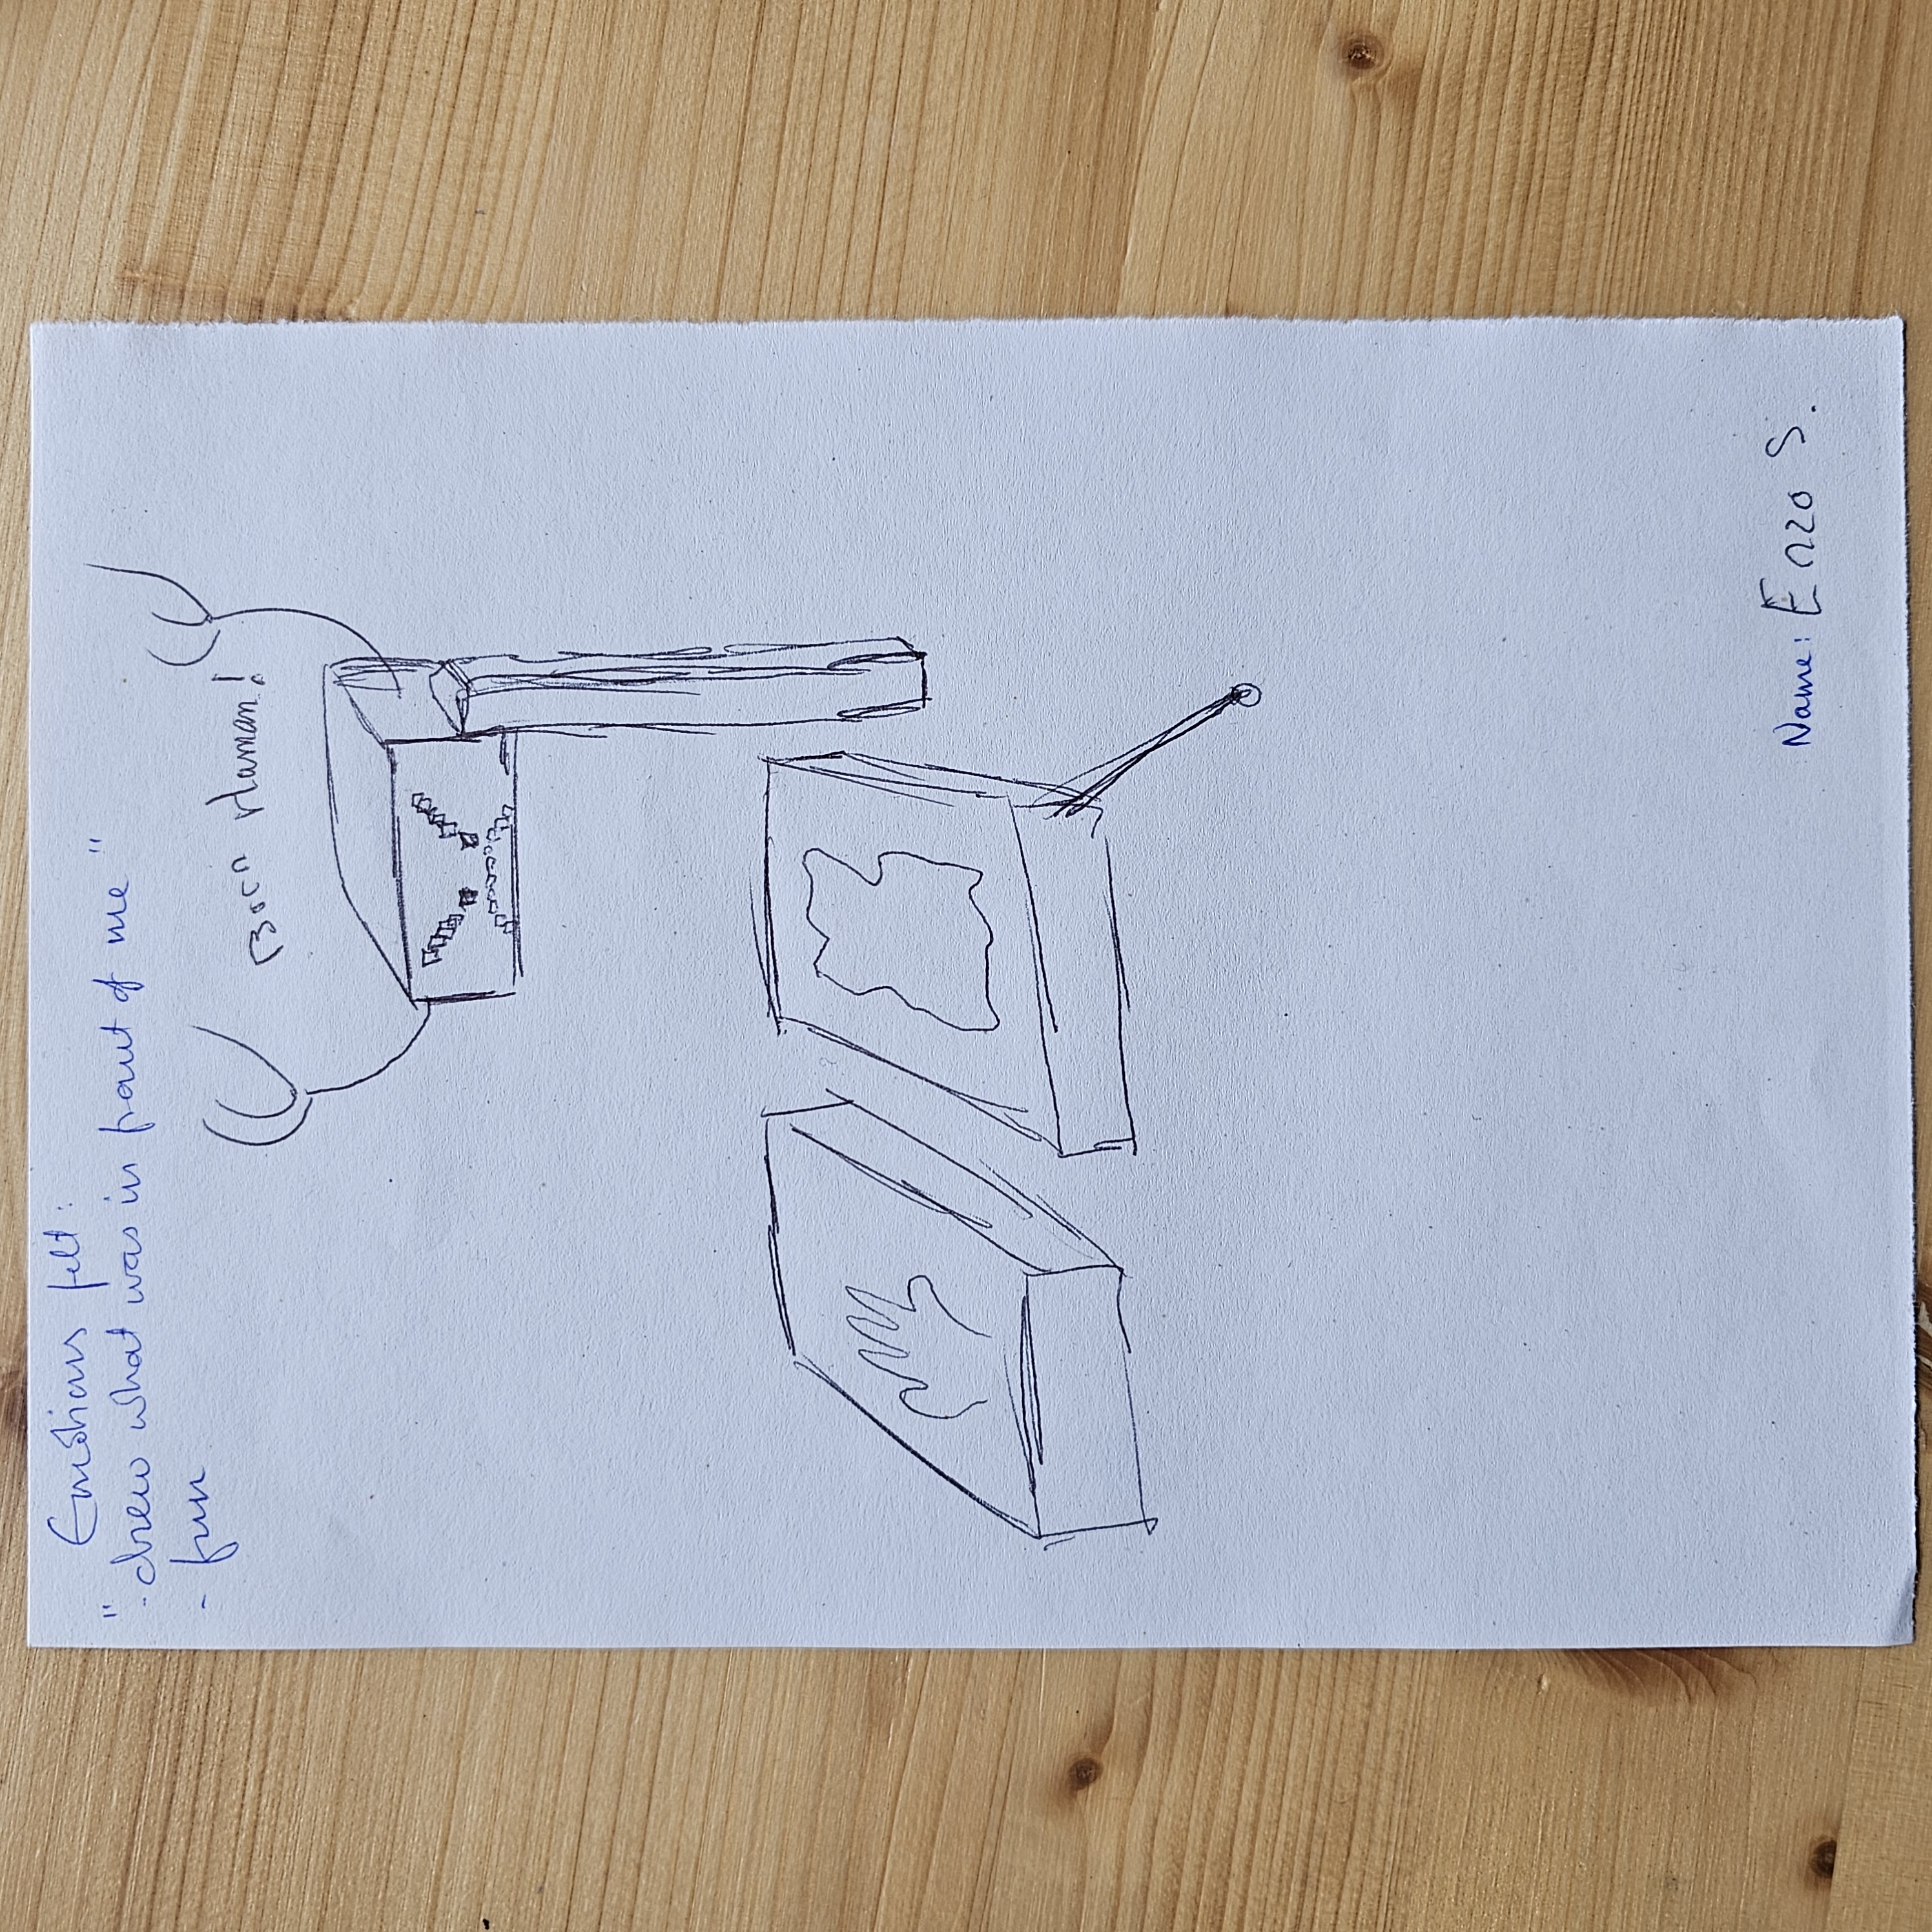 Emotions felt:
"- drew what was in front of me"
- fun
Born Human!
Name: Enzo S.